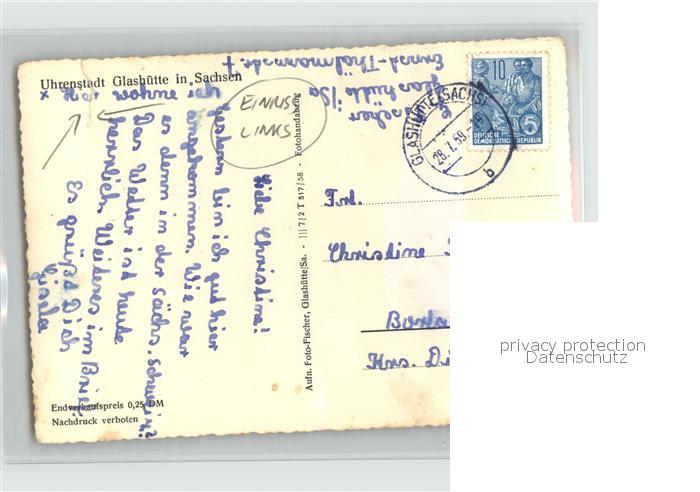 Uhrenstadt Glashütte in Sachsen
x Hier wohne ich
EINRISS
LINKS
Glashütte i/Sa
Ernst-Thälmannstr. 7
10
DEUTSCHE
DEMOKRATISCHE REPUBLIK
5
GLASHÜTTE (SACHS)
28.7.59
b
Liebe Christine!
Gestern bin ich gut hier
angekommen. Wie war
es denn in der Sächs. Schweiz?
Das Wetter ist heute
herrlich. Weiteres im Brief.
Es grüßt Dich
Gisela
Aufn. Foto-Fischer, Glashütte/Sa. - III 7/2 T 517/58 - Fotohandabzug
Frl.
Christine
Krs.
Endverkaufspreis 0,25 DM
Nachdruck verboten
privacy protection
Datenschutz